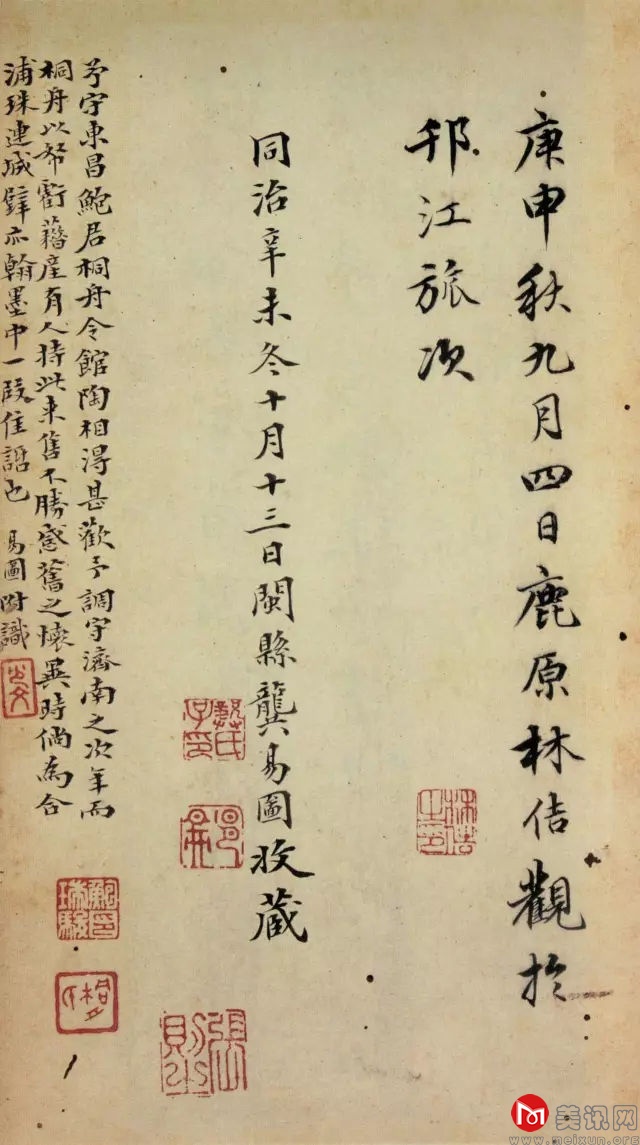 庚申秋九月四日鹿原林佶觀於
邗江旅次
同治辛未冬十月十三日閩縣龔易圖收藏
予守東昌鮑君桐舟令館陶相得甚歡予調守濟南之次年而
桐舟以帑虧藉產有人持此來售不勝感舊之懷異時倘為合
浦珠連城璧亦翰墨中一段佳話也 易圖附識
林佶之印
龔氏
鮑瑞駿印
張則之
美讯网
www.meixun.org